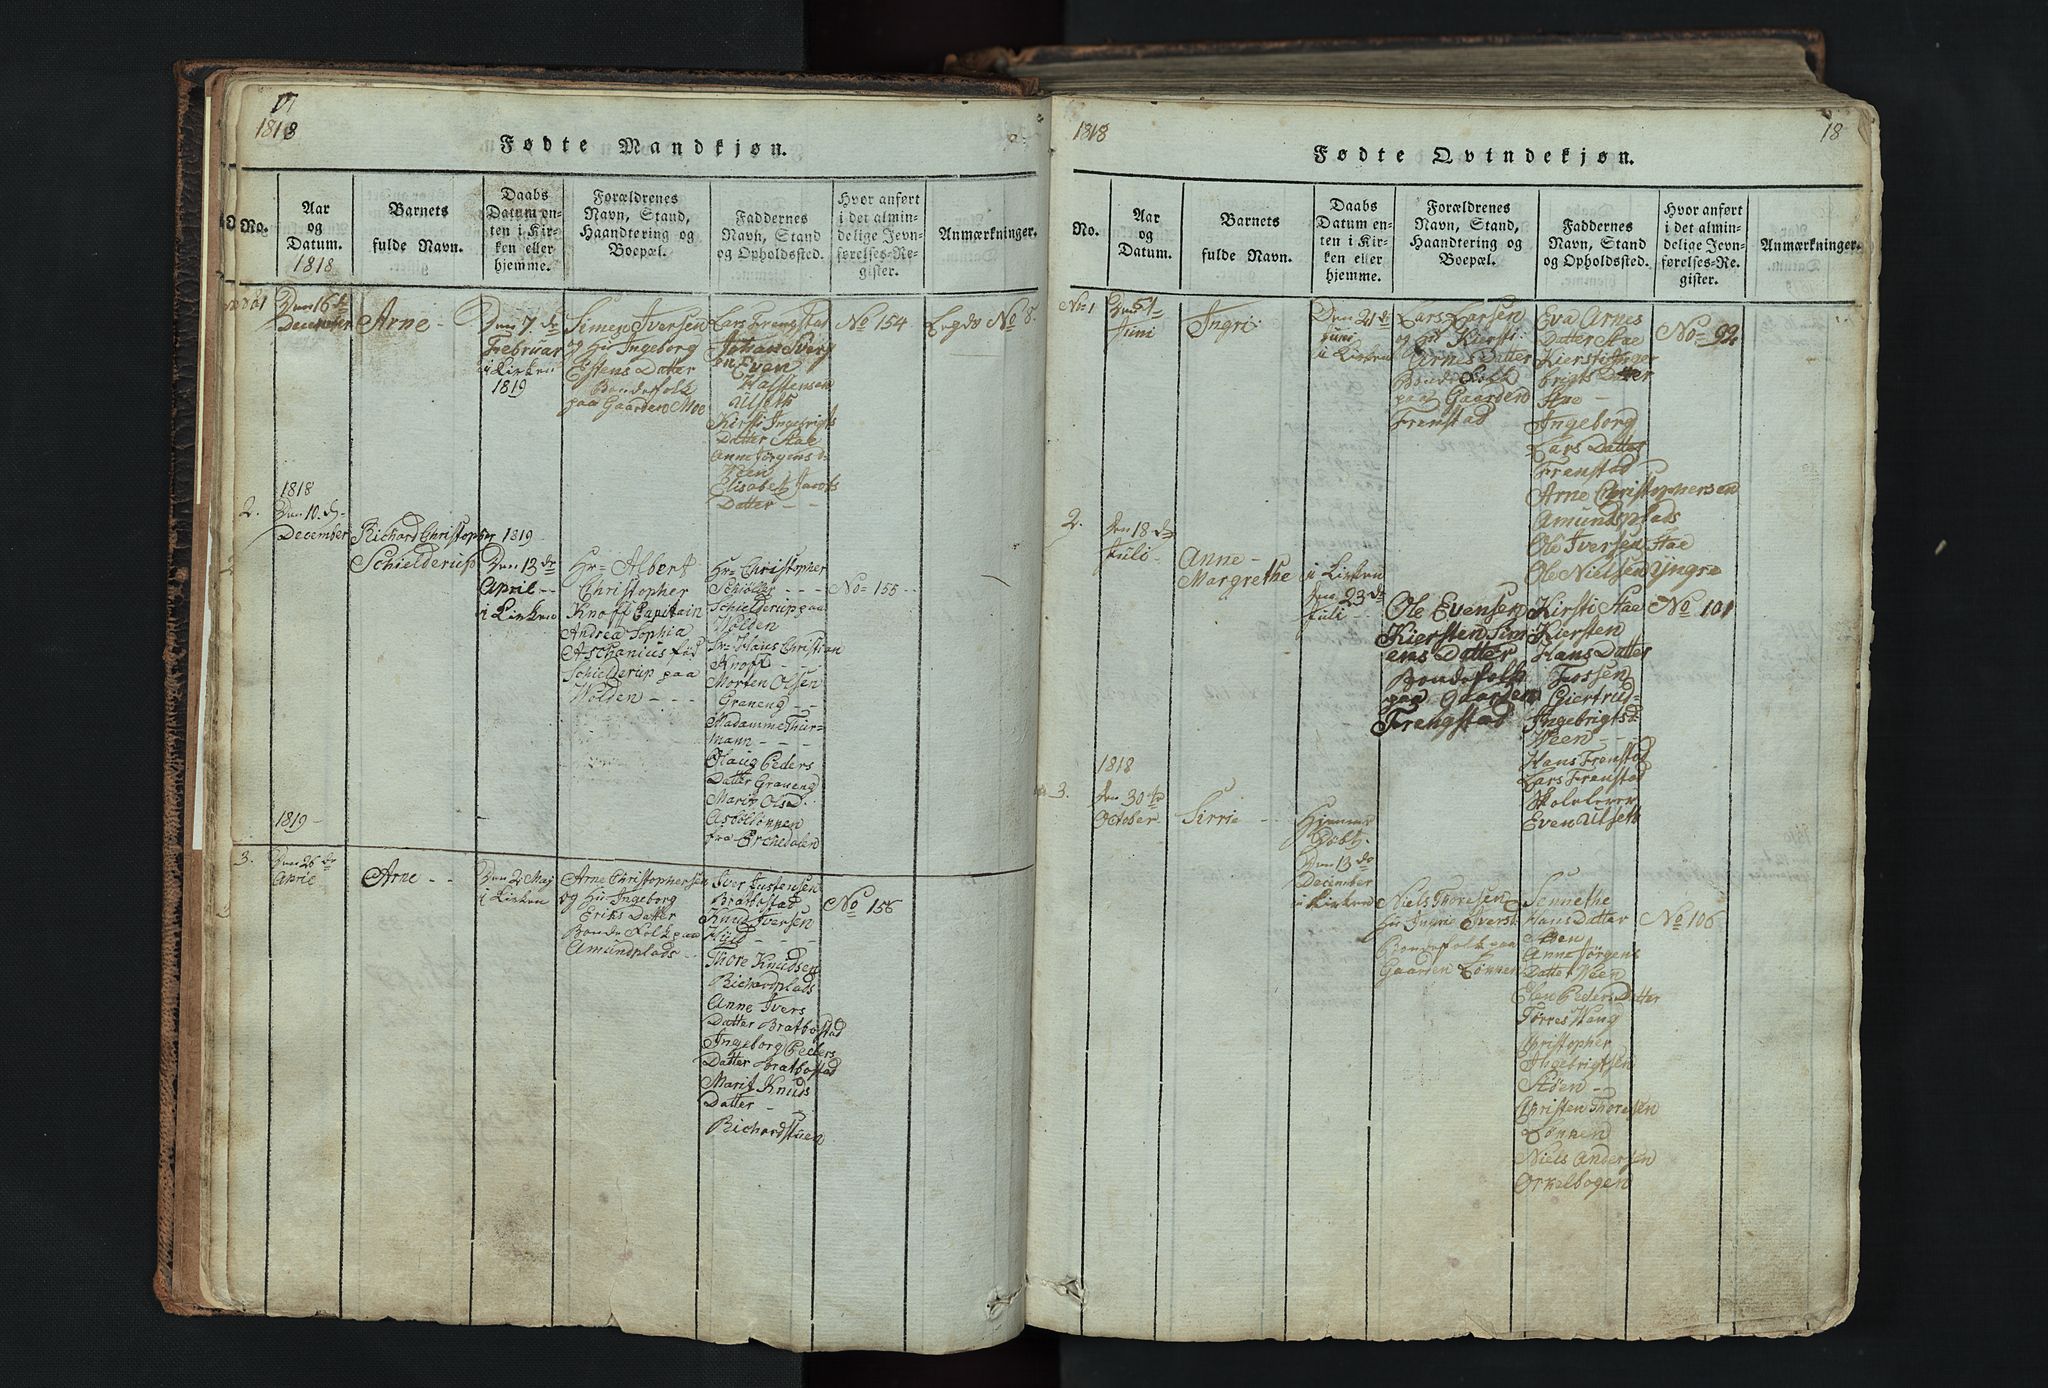 17
1818
Fødte Mandkjøn.
No.
Aar
og
Datum.
1818
Barnets
fulde Navn.
Daabs
Datum en-
ten i Kir-
ken eller
hjemme.
Forældrenes
Navn, Stand,
Haandtering og
Boepæl.
Faddernes
Navn, Stand
og Opholdssted.
Hvor anført
i det almin-
delige Jevn-
førelses-Re-
gister.
Anmærkninger.
Den 16
December
Arne
Den 7 de
Februar
i Kirken
1819
Simen Iversen
og Hu Ingeborg
Estens Datter
Bondefolk
paa Gaarden Moe
Lars Frengstad
Johan Ivers
en
Even
Halstensen
Ulseth
Kirsti Ingebrigts
Datter Aae
Anne Jørgens d
Elisabeth Jacobs
Datter
No 154
No 8
1818
2.
Den 10 d
December
Richard Christopher
Schielderup
1819
Den 13 de
April
i Kirken
Hr Albert
Christopher
Knoff Capitain
Andrea Sophia
Aschanius fød
Schielderup paa
Wolden
Hr Christopher
Schøller
Schielderup paa
Wolden
Hr Hans Christian
Knoff
Morten Olsen
Graneng
Madamme Thur-
mann
Olaug Peders
Datter Graneng
Marit Olsd
fra Orchedalen
No 155
1819
3.
Den 26 de
April
Arne
Den 2 Maj
i Kirken
Arne Christophersen
og Hu Ingeborg
Eriks Datter
Bonde Folk paa
Amundplads
Iver Iustensen
Bratbostad
Knud Iversen
Thore Knudsen
Richardplads
Anne Ivers
Datter Bratbostad
Ingeborg Peders
Datter Bratbostad
Marit Knuds
Datter
Richardstuen
No 156
1818
18
Fødte Qvindekjøn.
No.
Aar
og
Datum.
Barnets
fulde Navn.
Daabs
Datum en-
ten i Kir-
ken eller
hjemme.
Forældrenes
Navn, Stand,
Haandtering og
Boepæl.
Faddernes
Navn, Stand
og Opholdssted.
Hvor anført
i det almin-
delige Jevn-
førelses-Re-
gister.
Anmærkninger.
No 1
Juni
Ingri
Den 21 d
Juni
i Kirken
Lars Larsen
og Hu Kiersti
Arnes Datter
Bonde Folk
paa Gaarden
Frenstad
Eva Arnes
Datter Aae
Kiersti Inge
brigts Datter
Aae
Ingeborg
Lars Datter
Frenstad
Arne Christophersen
Amundsplads
Ole Iversen Aae
Ole Nielsen Yngre
No 92
2.
Den 18 de
Juli
Anne
Margrethe
i Kirken
den 23 de
Juli
Ole Evensen
Kiersten Sim
ens Datter
Bondefolk
paa Gaarden
Frengstad
Kirsti Aae
Kiersten
Hans Datter
Fossen
Giertrud
Ingebrigtsd
Ween
Hans Frenstad
Lars Frenstad
Skolelerer
Even Ulseth
No 101
1818
3.
den 30 te
October
Sirrie
Hjemme
Døbt
Den 13 de
December
i Kirken
Niels Thoresen
Hu Ingrie Iversd
Bondefolk paa
Gaarden Lønnen
Sennethe
Hans Datter
Anne Jörgens
Datter Ween
Elen Peders Datter
Torres Wang
Christopher
Ingebrigtsen
Christen Thoresen
Lønnen
Niels Andersen
Orkelbogen
No 106